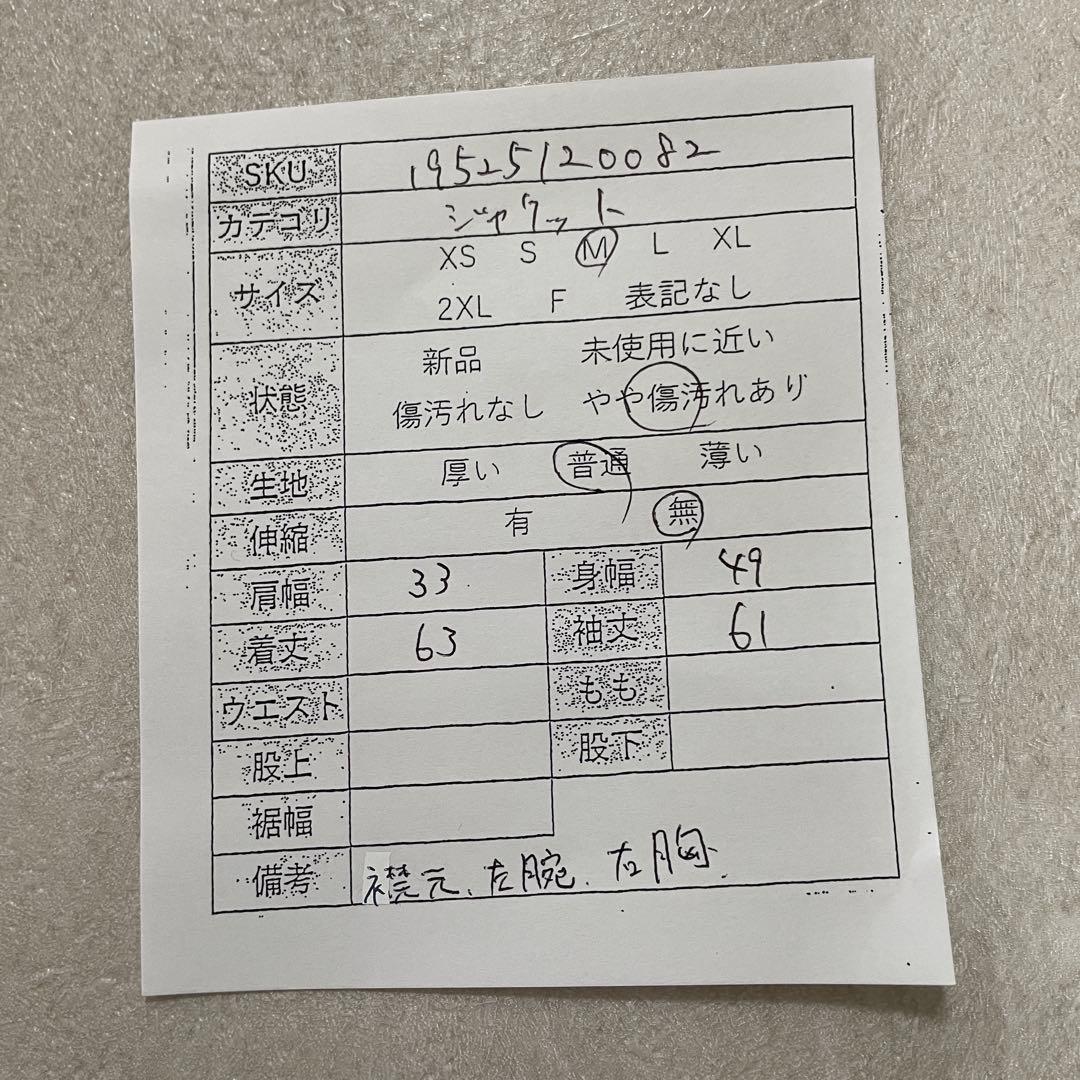 SKU 19525120082
カテゴリ ジャケット
サイズ XS S M L XL
2XL F 表記なし
状態 新品 未使用に近い
傷汚れなし やや傷汚れあり
生地 厚い 普通 薄い
伸縮 有 無
肩幅 33 身幅 49
着丈 63 袖丈 61
ウエスト もも
股上 股下
裾幅
備考 襟元、左腕、右胸